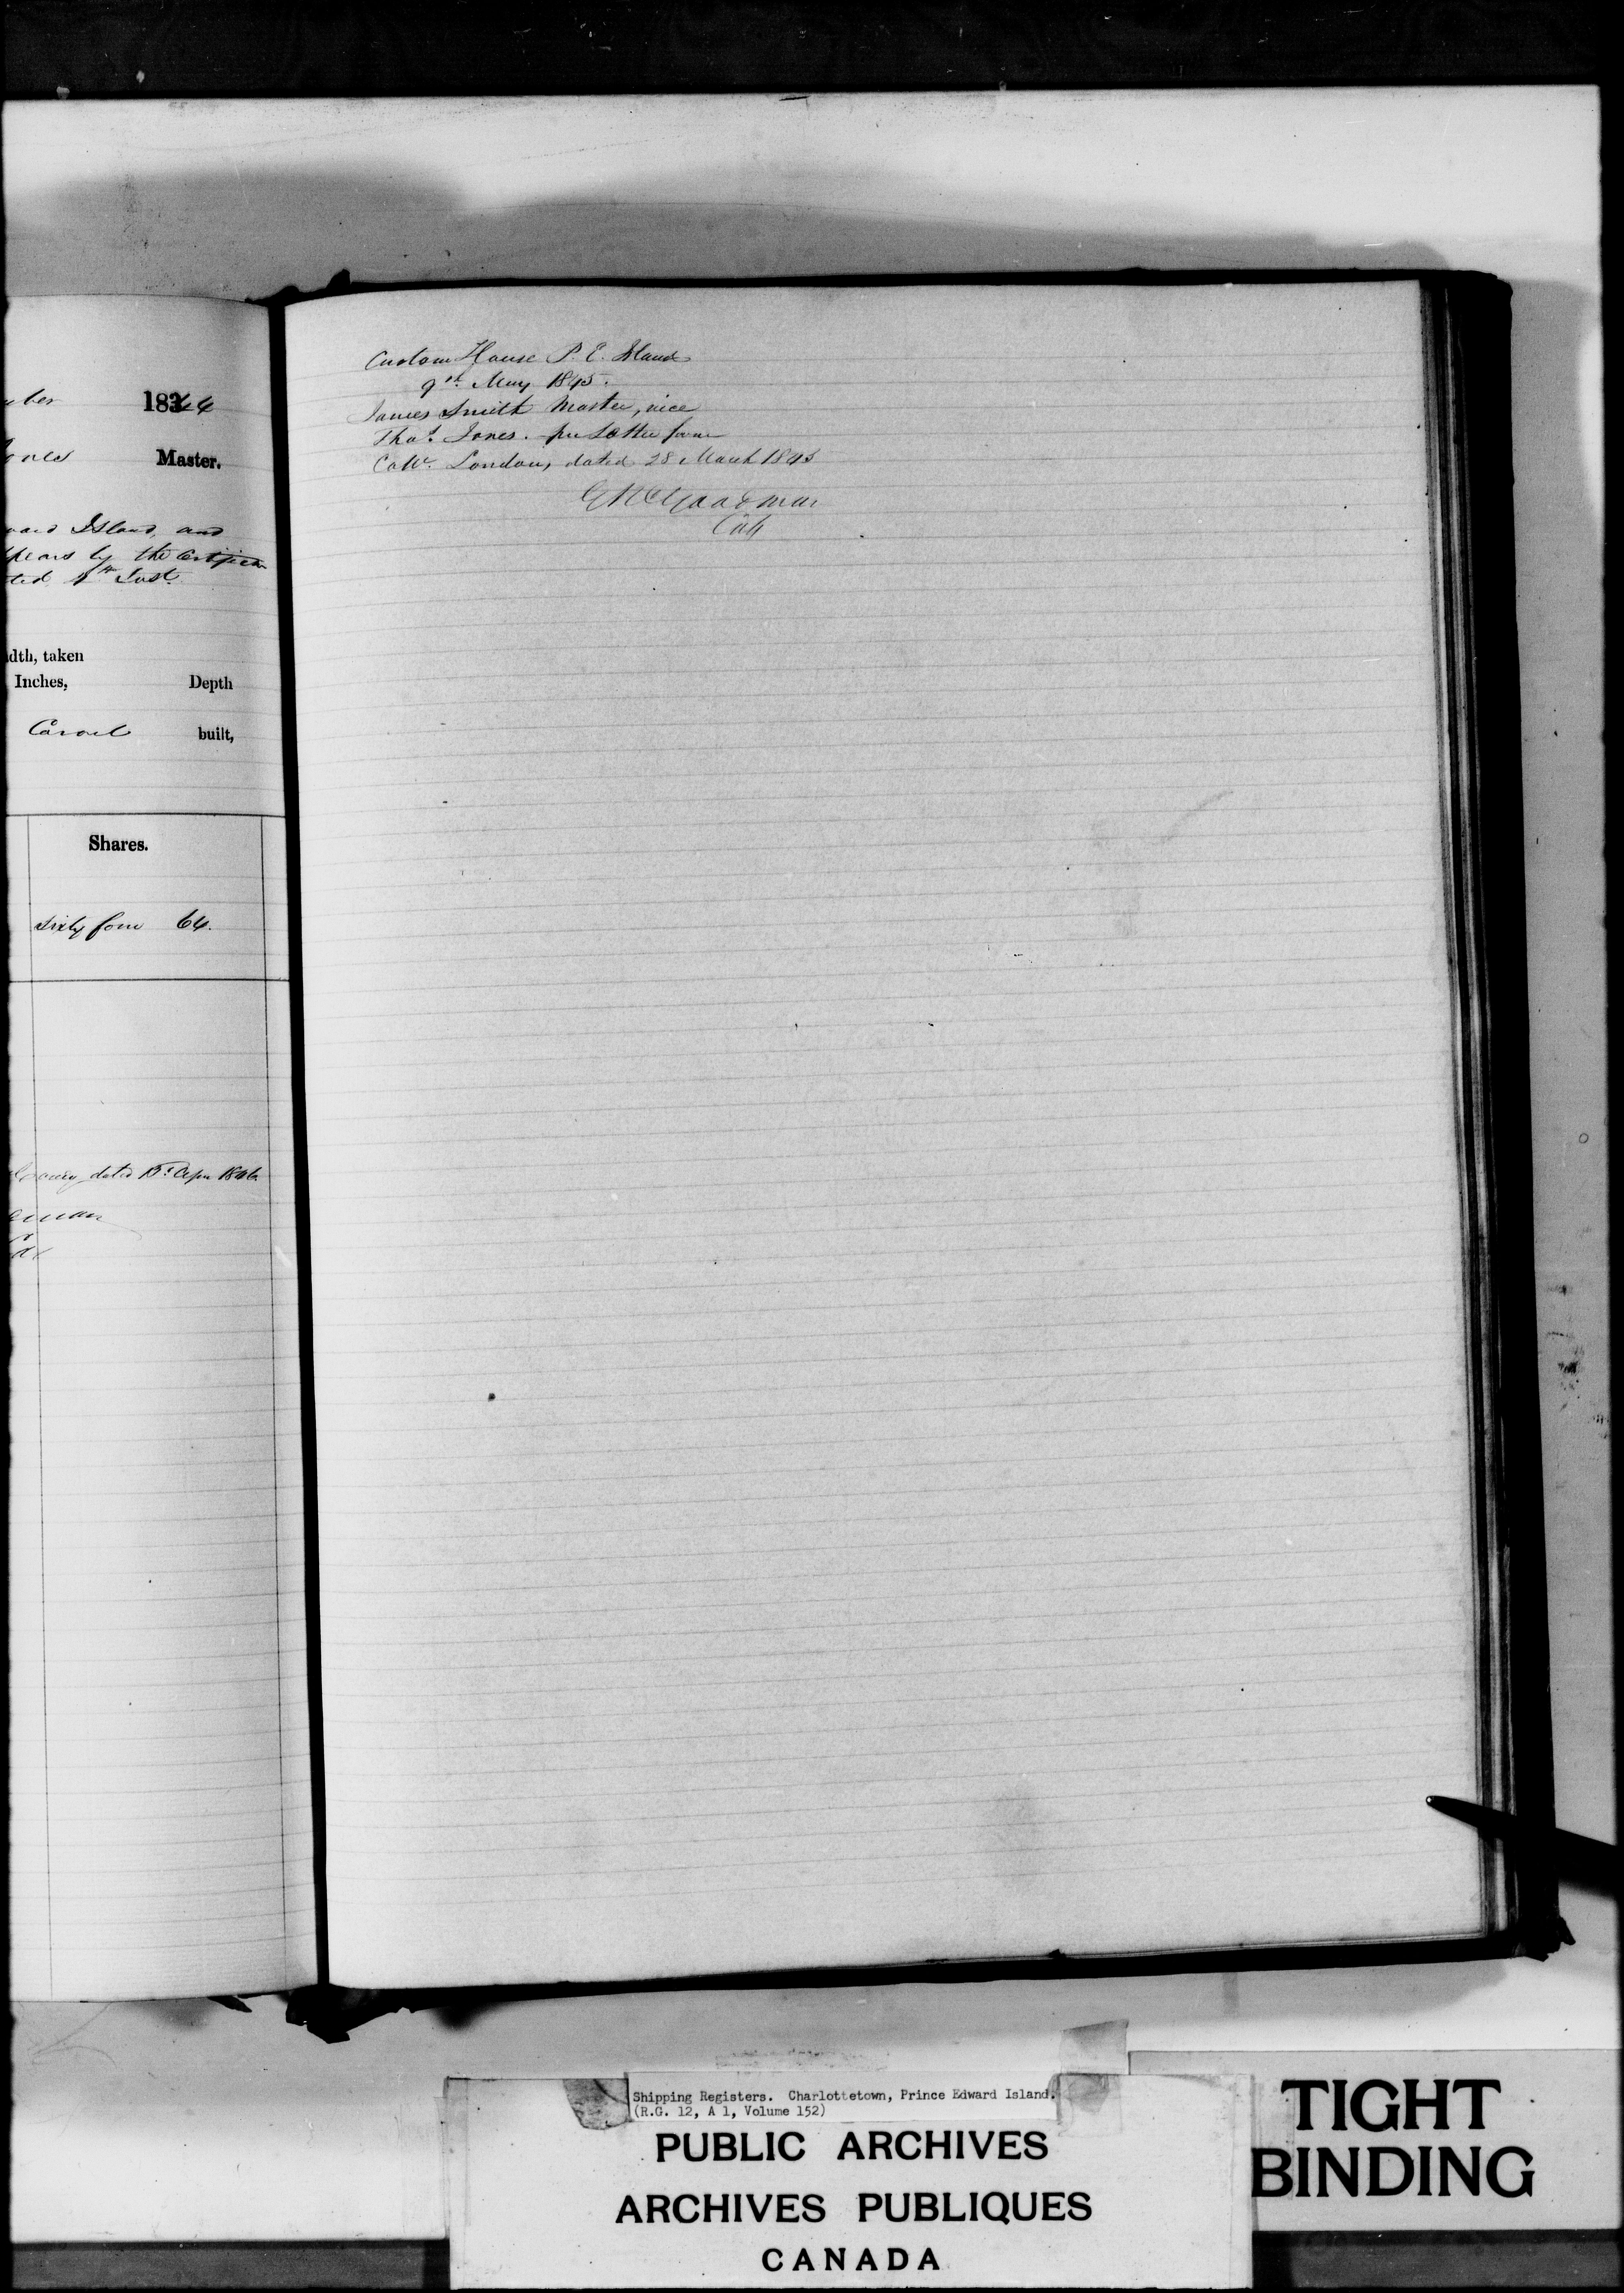 1844
Master.
Island, and
by the Certificate
Inst.
dth, taken
Inches, Depth
Carvel built,
Shares.
Sixty four 64.
dated 15th Apr 1846
Custom House P. E. Island
9th May 1845.
James Smith Master, vice
Thos. Jones. per Letter from
London, dated 28 March 1845
Goodman
Coll
Shipping Registers. Charlottetown, Prince Edward Island.
(R.G. 12, A 1, Volume 152)
PUBLIC ARCHIVES
ARCHIVES PUBLIQUES
CANADA
TIGHT
BINDING